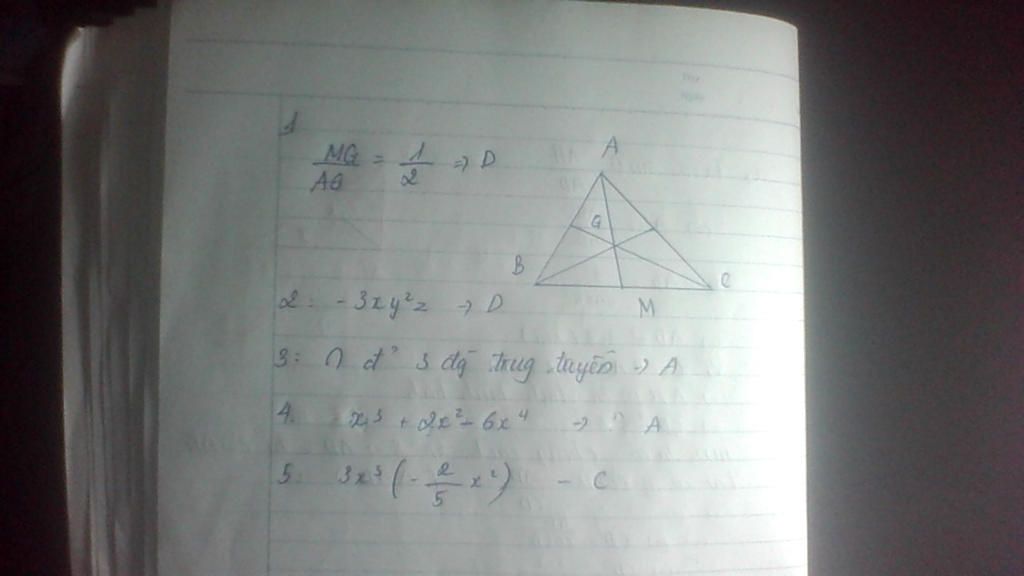 1
MG/AG = 1/2 => D
A
G
B
C
M
2: - 3xy²z -> D
3: ∩ đ² 3 đg trug tuyến -> A
4. x³ + 2x² - 6x⁴ -> A
5: 3x³ (- 2/5 x²) - C